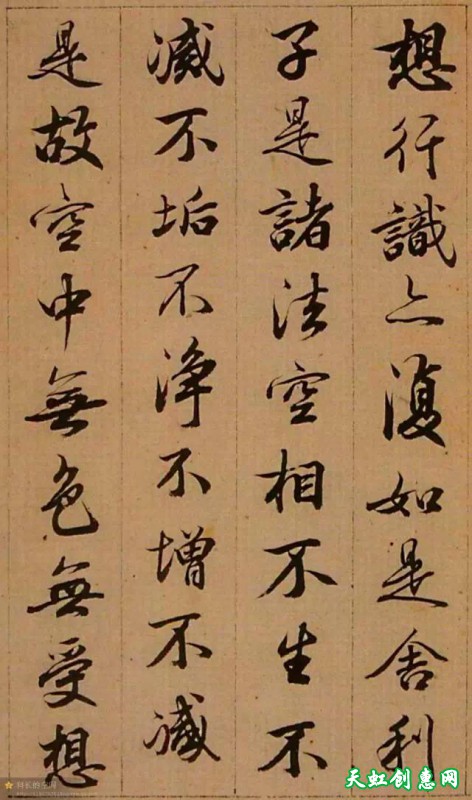 想行識亦復如是舍利
子是諸法空相不生不
滅不垢不淨不增不減
是故空中無色無受想
天虹创惠网